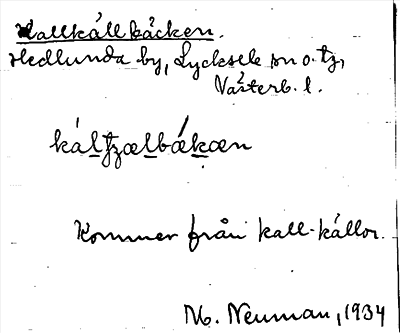 Kallkällbäcken.
Hedlunda by, Lycksele sn o. tg,
Västerb. l.
kálʈʂælbǽkæn
Kommer från kall-källor.
M. Neuman, 1934